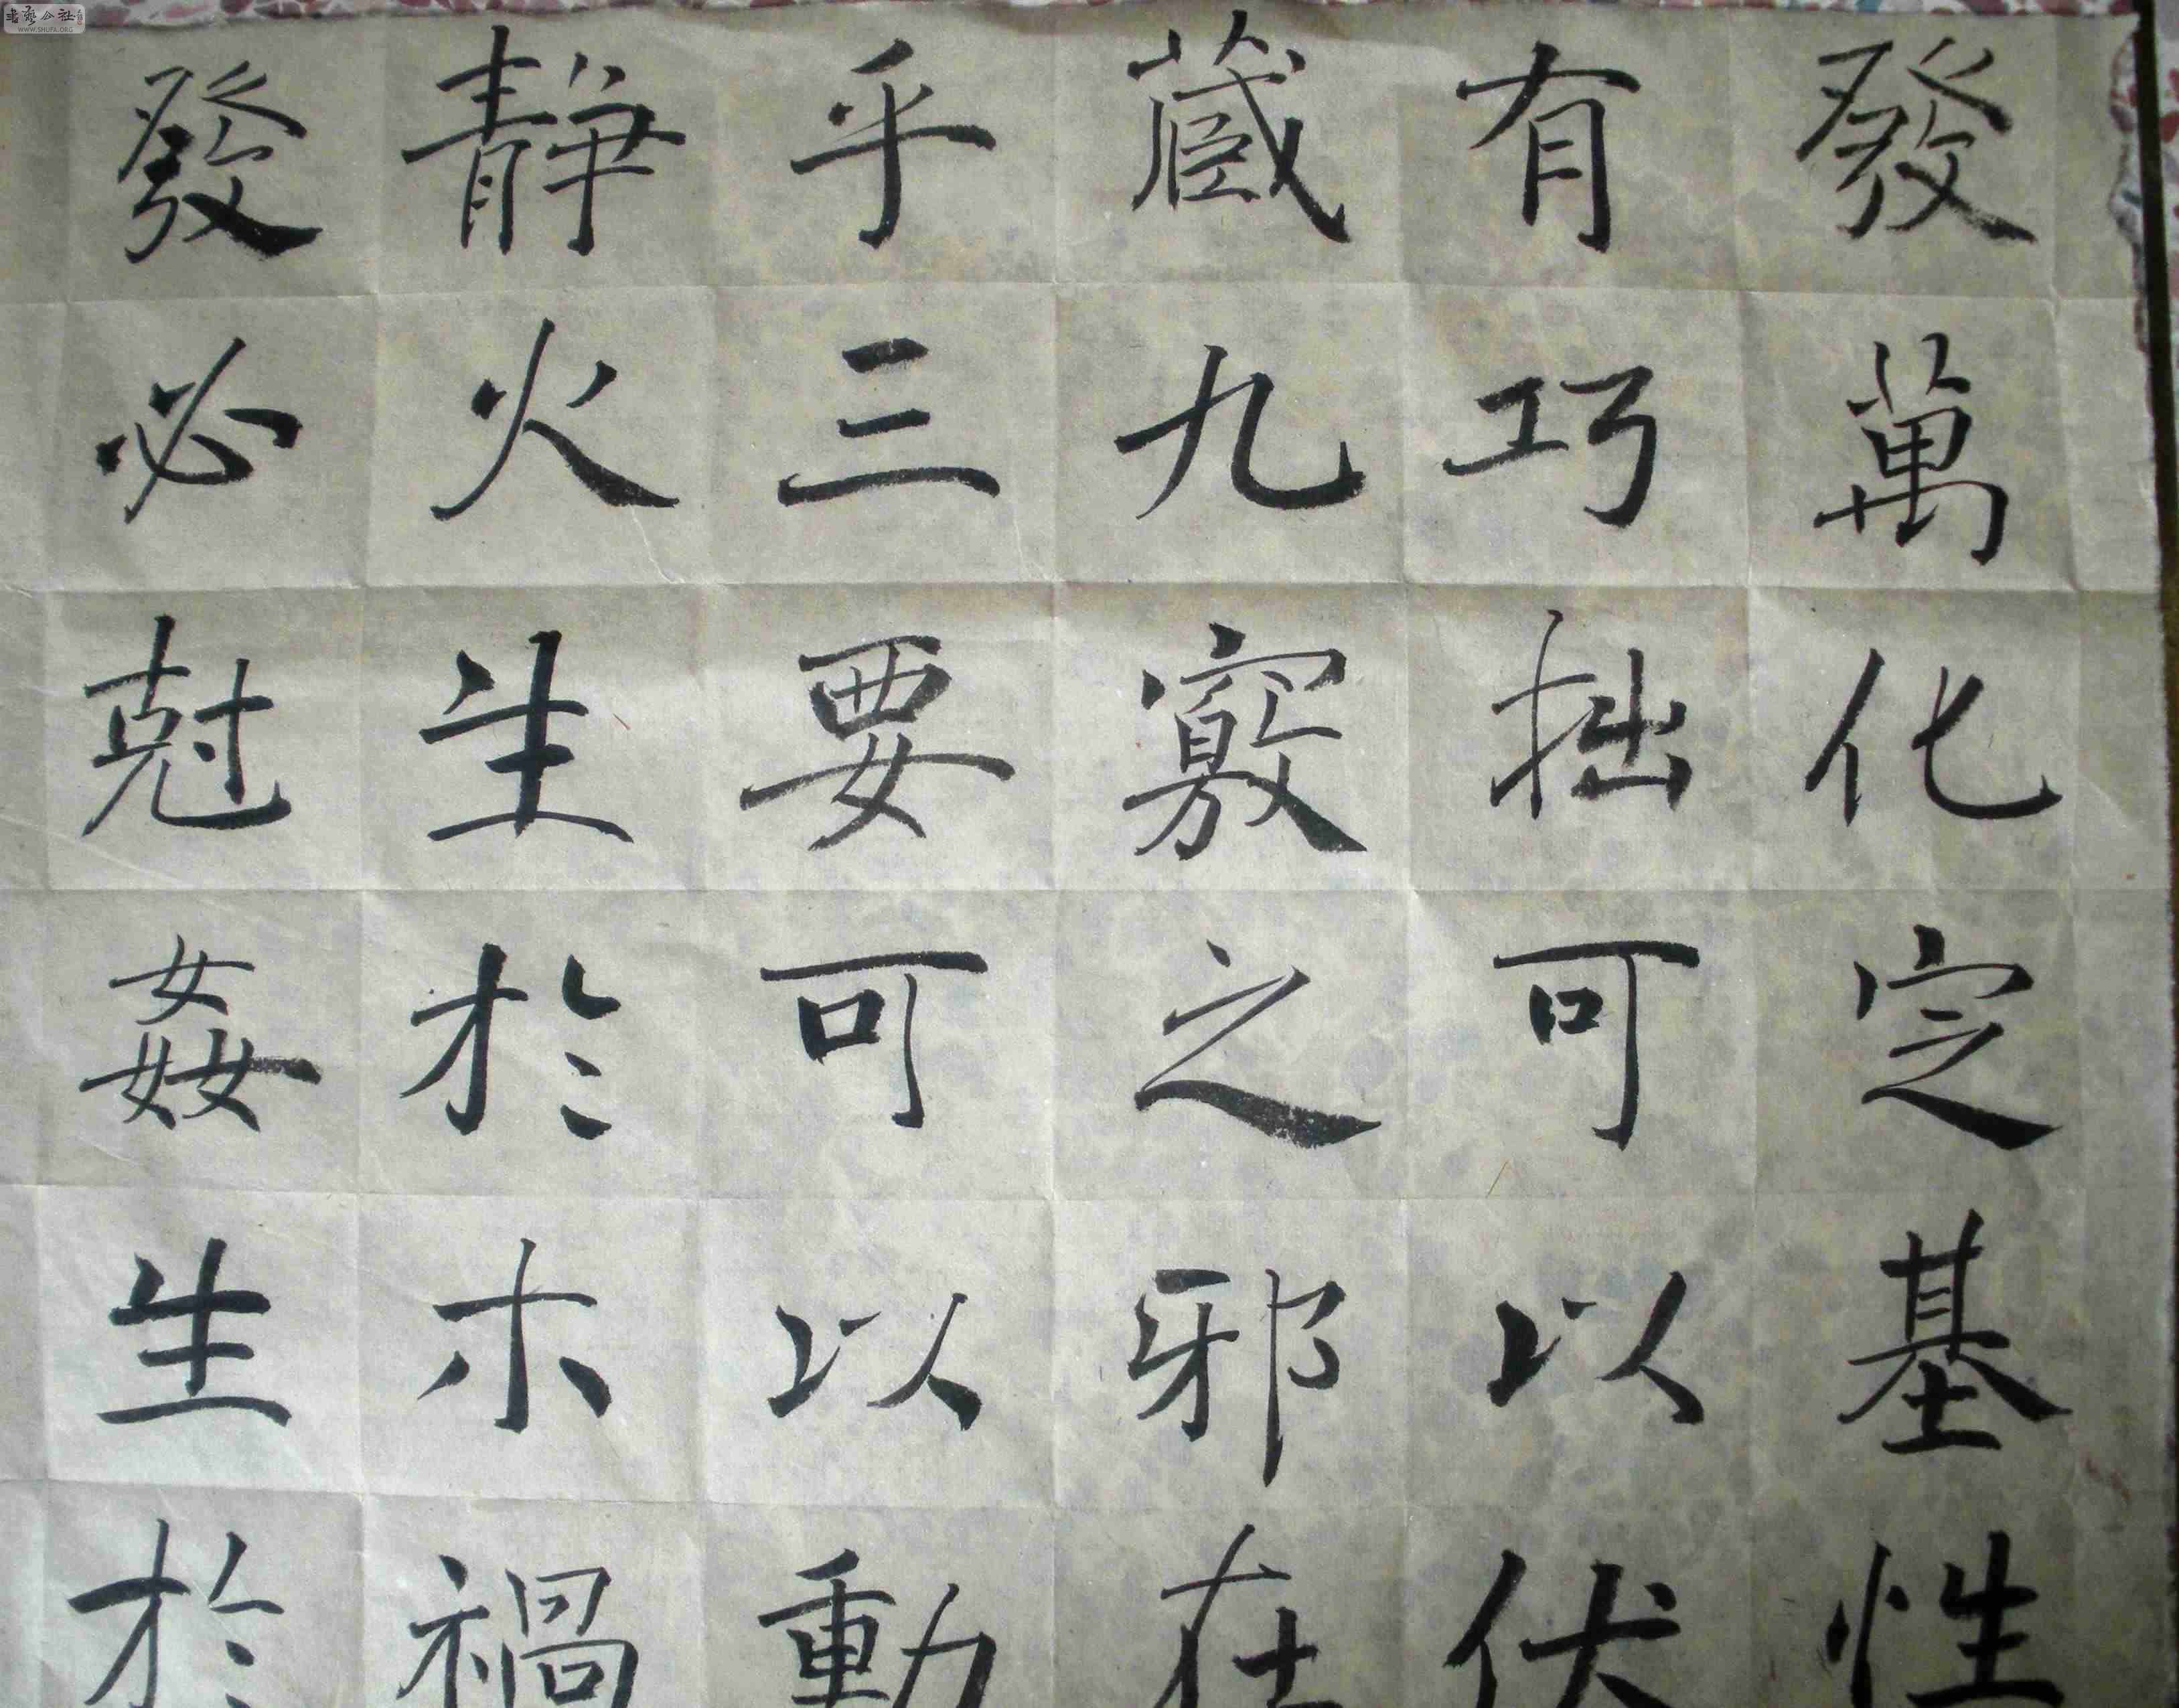 發萬化定基性
有巧拙可以伏
藏九竅之邪在
乎三要可以動
靜火生於木禍
發必尅姦生於
書藝公社
WWW.SHUFA.ORG